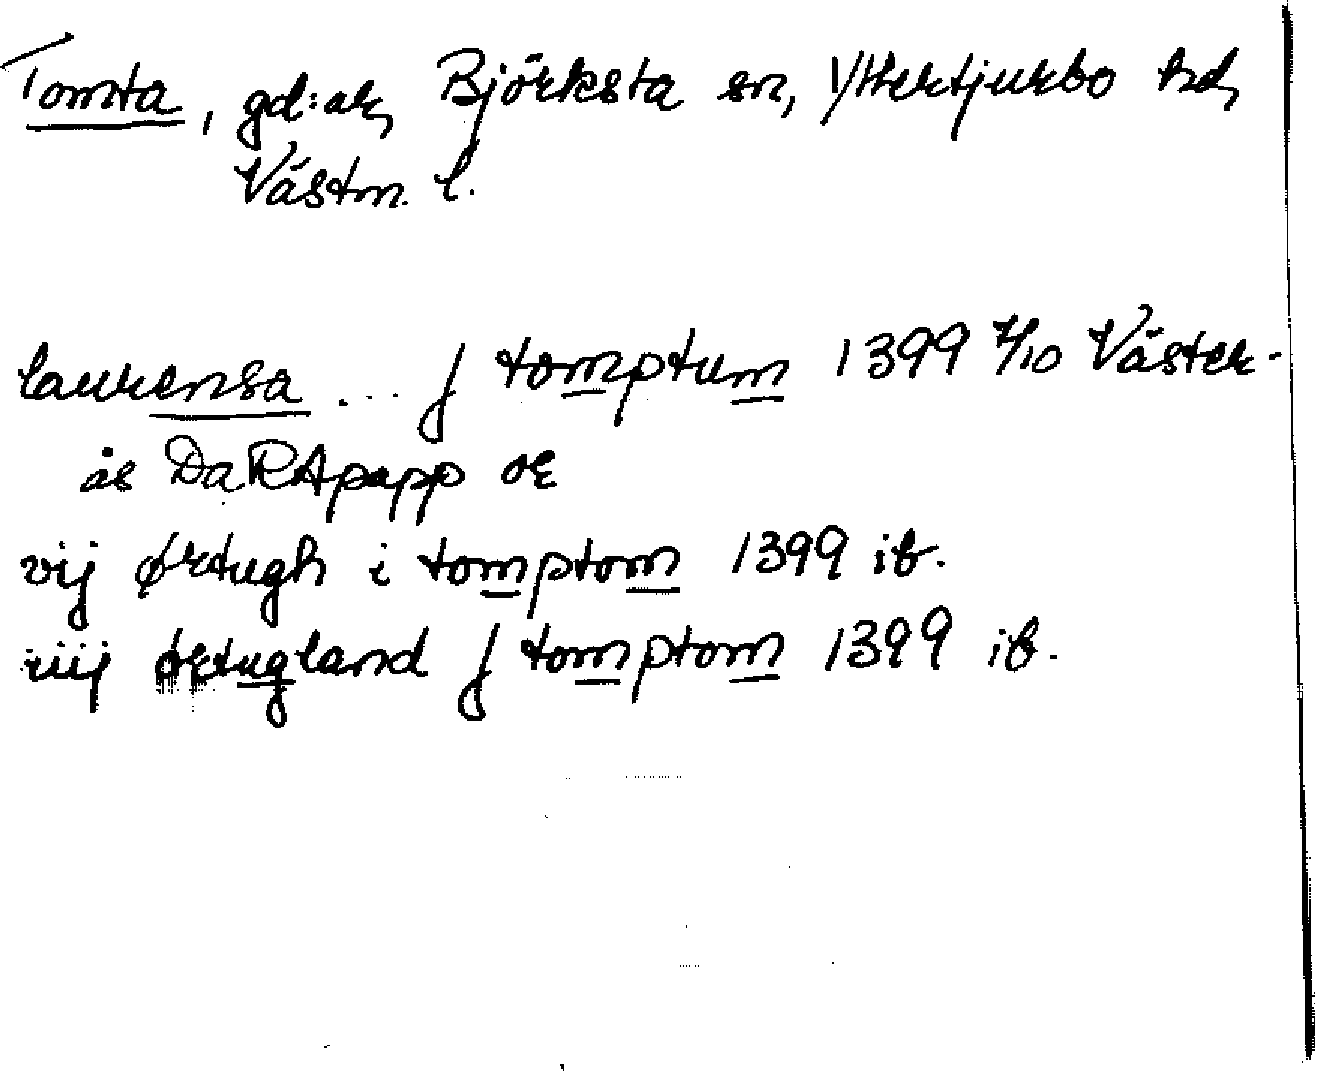 Tomta, gd:ar, Björksta sn, Yttertjurbo hd,
Västm. l.
laurensa ... j tomptum 1399 7/10 Väster-
ås DaRApapp or
vij ørtugh i tomptom 1399 ib.
iiij ørtugland j tomptom 1399 ib.